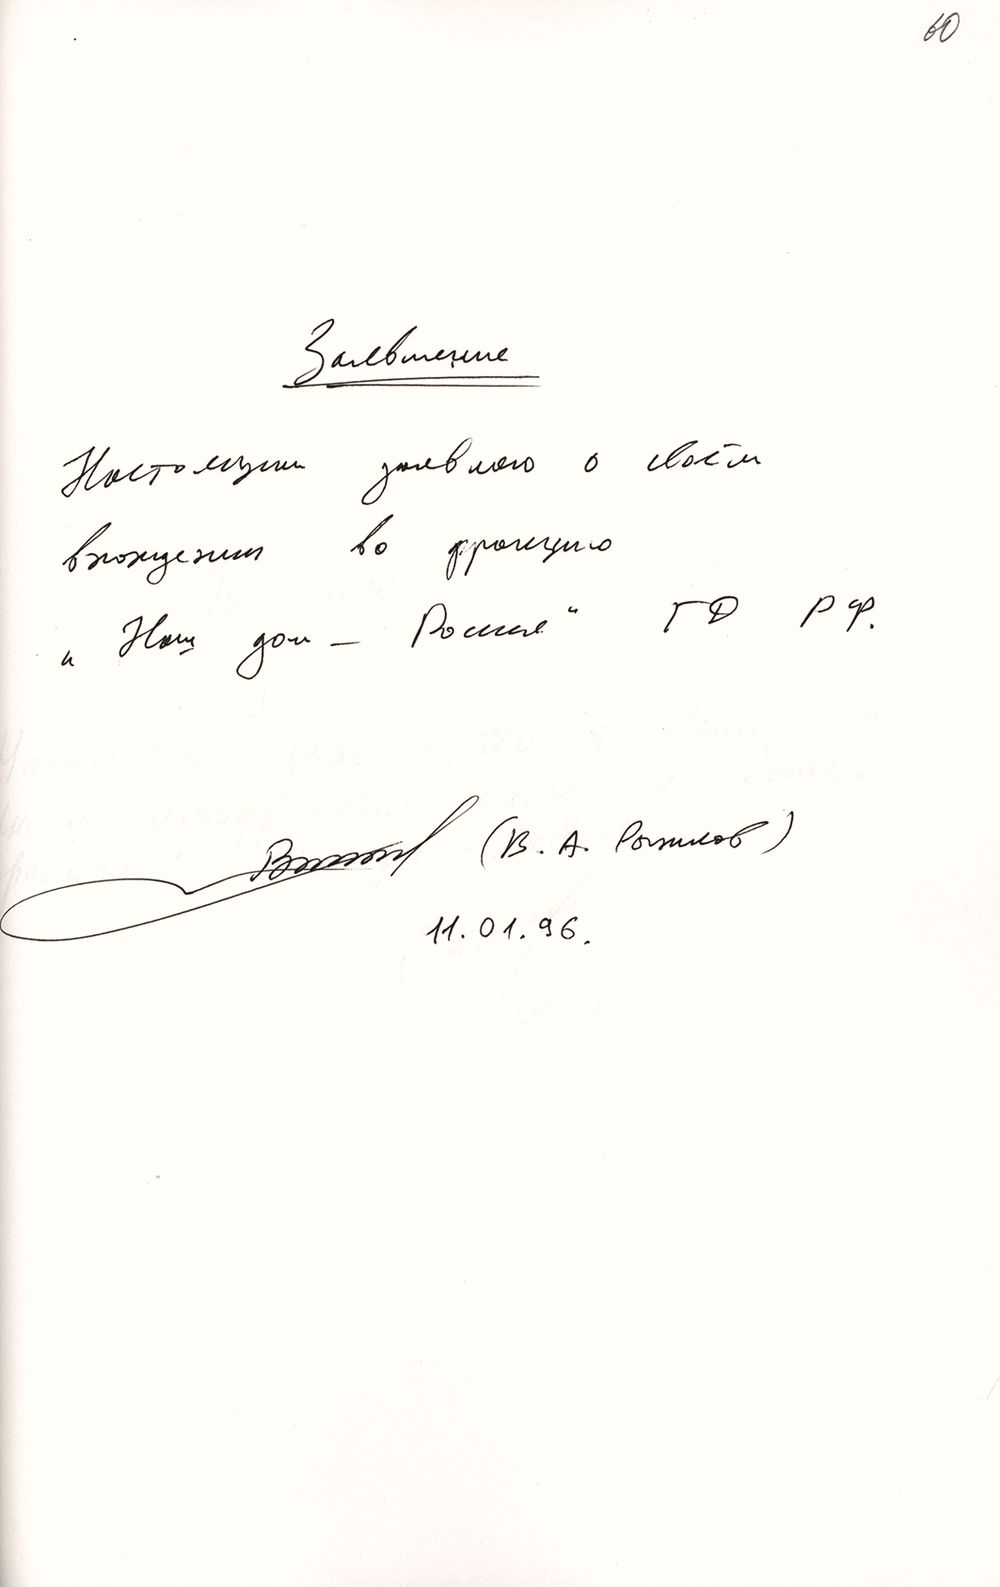 60
Заявление
Настоящим заявляю о своём
вхождении во фракцию
„Наш дом – Россия“ ГД РФ.
(В. А. )
11.01.96.